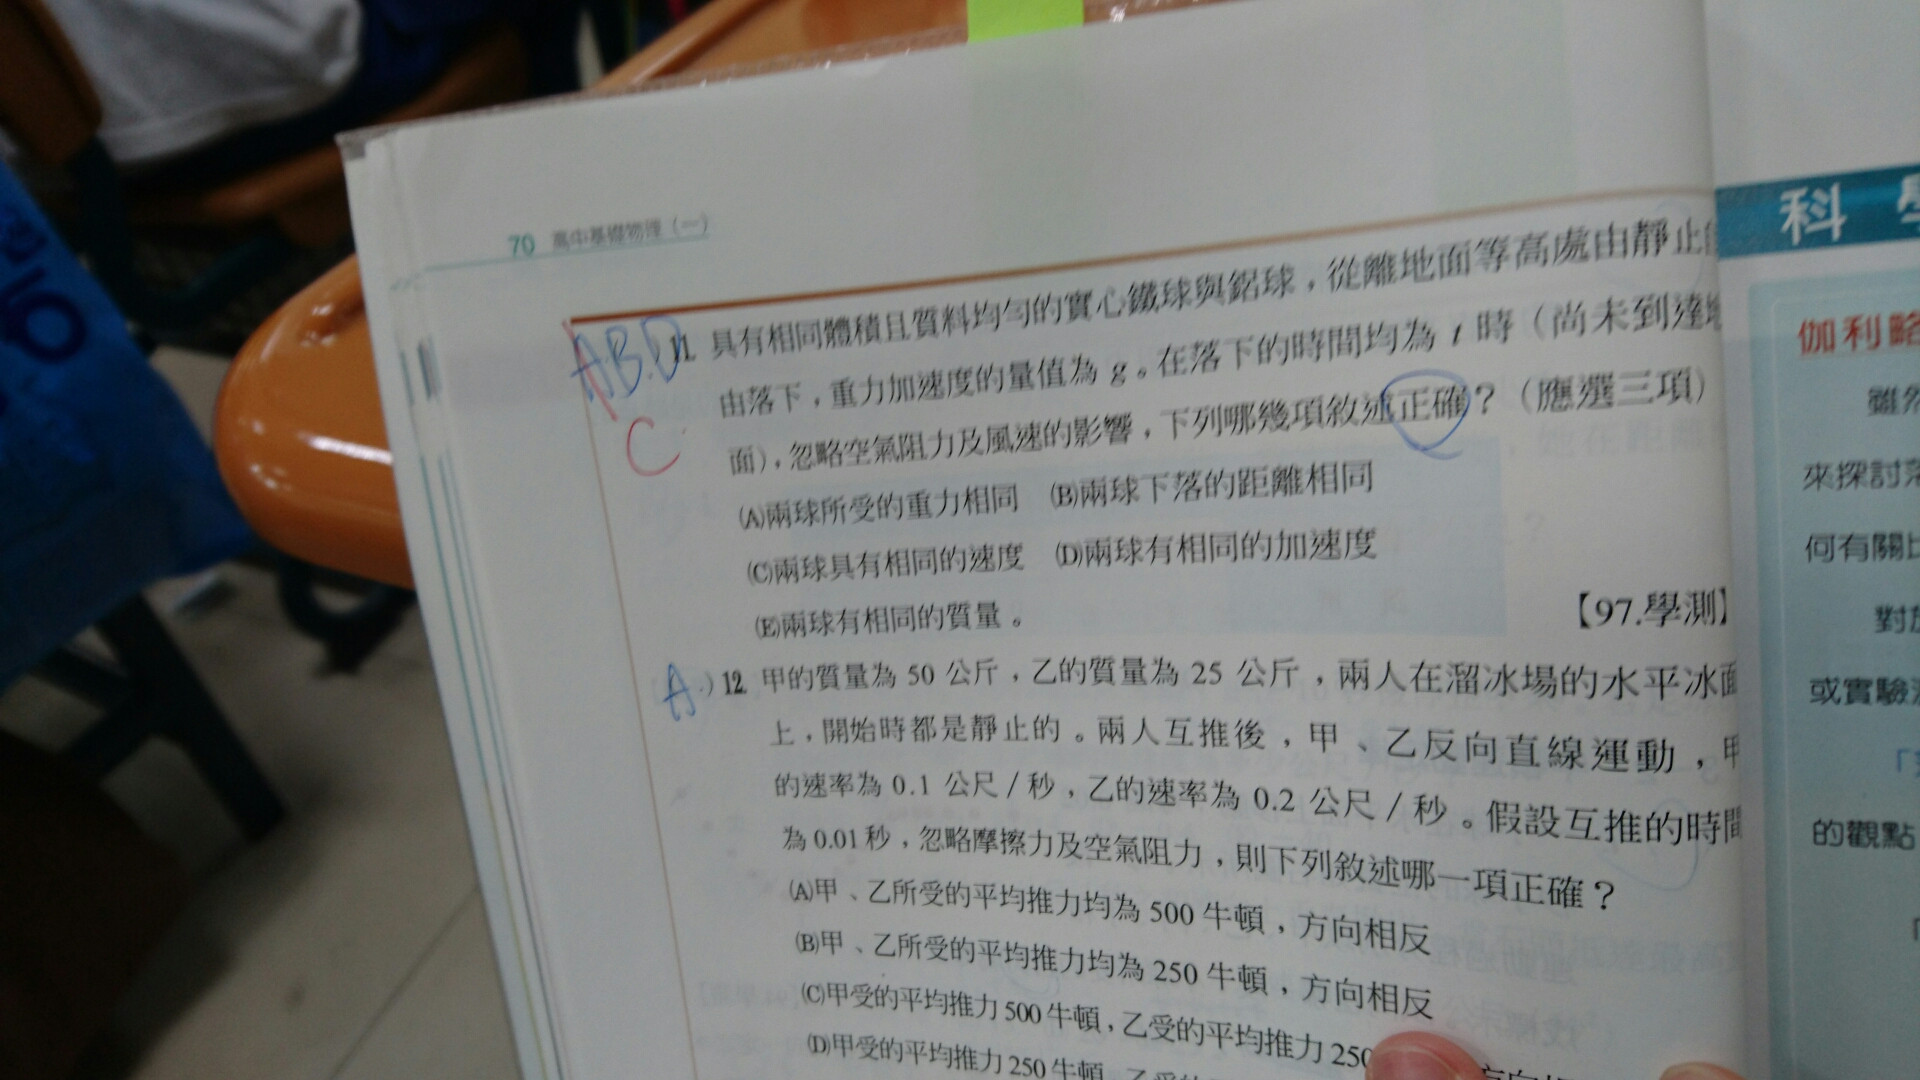 70 高中基礎物理（一）
ABD
C
11. 具有相同體積且質料均勻的實心鐵球與鋁球，從離地面等高處由靜止
由落下，重力加速度的量值為 g。在落下的時間均為 t 時（尚未到達地
面），忽略空氣阻力及風速的影響，下列哪幾項敘述正確？（應選三項）
(A)兩球所受的重力相同 (B)兩球下落的距離相同
(C)兩球具有相同的速度 (D)兩球有相同的加速度
(E)兩球有相同的質量。
【97.學測】
A ) 12. 甲的質量為 50 公斤，乙的質量為 25 公斤，兩人在溜冰場的水平冰面
上，開始時都是靜止的。兩人互推後，甲、乙反向直線運動，甲
的速率為 0.1 公尺／秒，乙的速率為 0.2 公尺／秒。假設互推的時間
為 0.01 秒，忽略摩擦力及空氣阻力，則下列敘述哪一項正確？
(A)甲、乙所受的平均推力均為 500 牛頓，方向相反
(B)甲、乙所受的平均推力均為 250 牛頓，方向相反
(C)甲受的平均推力 500 牛頓，乙受的平均推力 250
(D)甲受的平均推力 250 牛頓
科 學
伽利略
雖然
來探討落
何有關比
對於
或實驗
的觀點